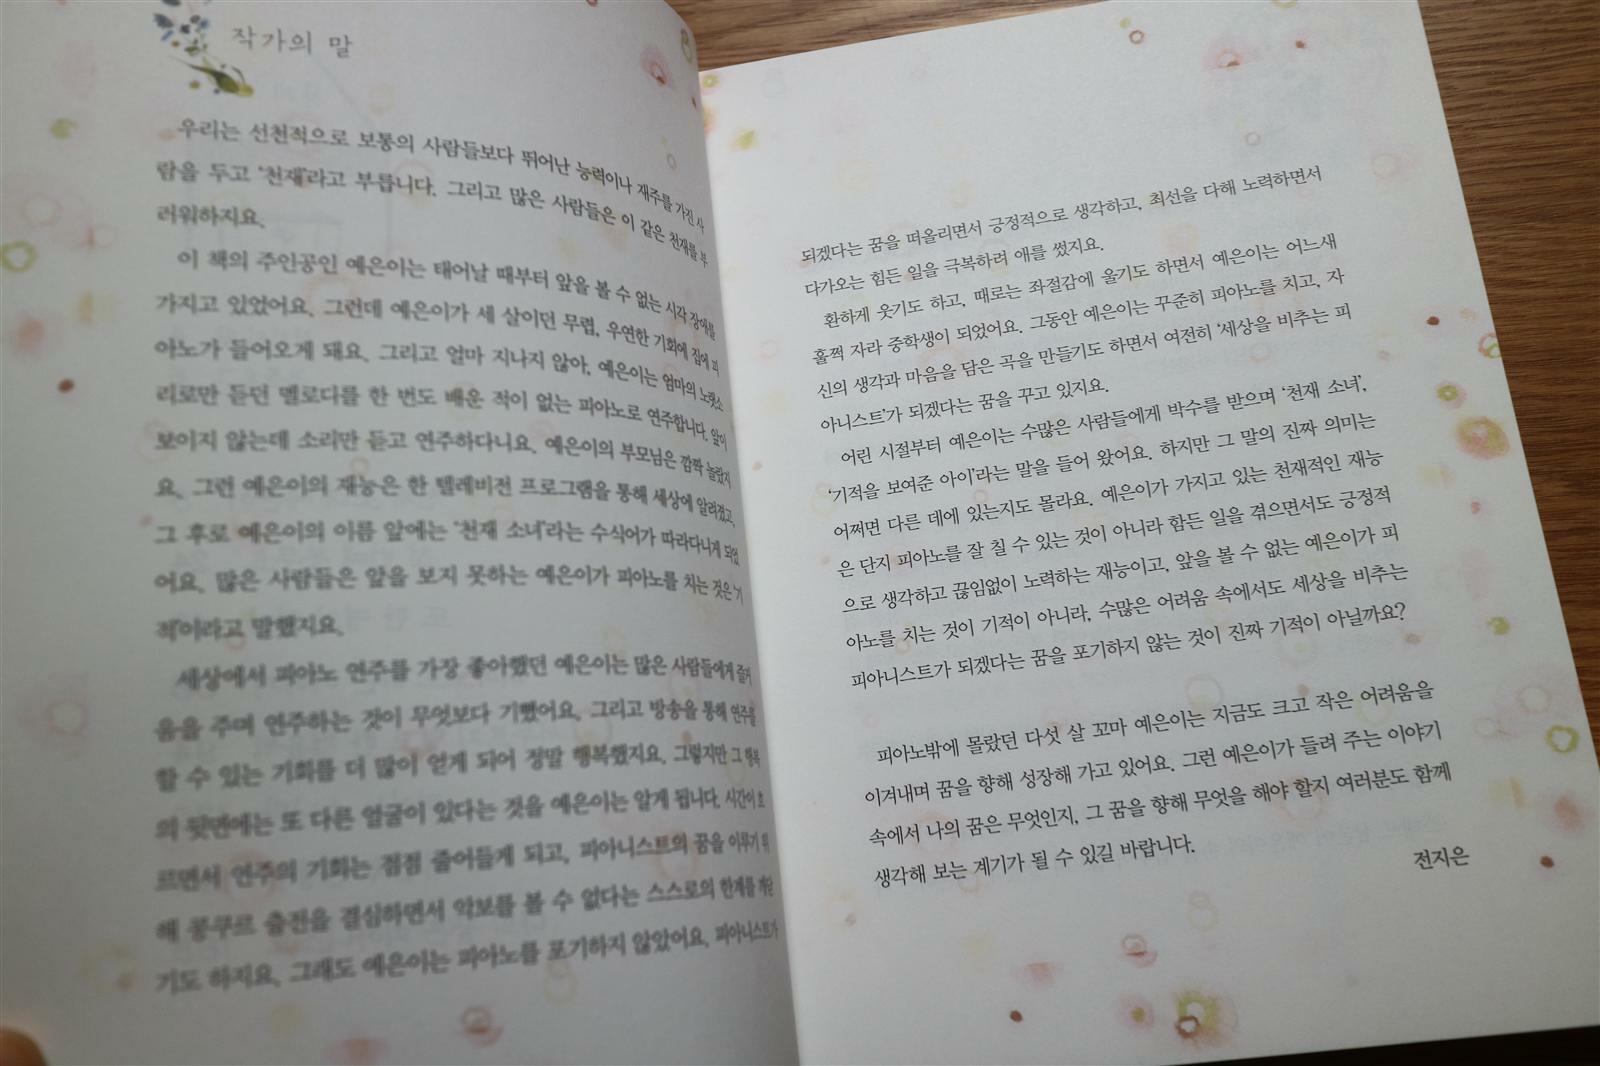 작가의 말
우리는 선천적으로 보통의 사람들보다 뛰어난 능력이나 재주를 가진 사
람을 두고 '천재'라고 부릅니다. 그리고 많은 사람들은 이 같은 천재를 부
러워하지요.
이 책의 주인공인 예은이는 태어날 때부터 앞을 볼 수 없는 시각 장애를
가지고 있었어요. 그런데 예은이가 세 살이던 무렵, 우연한 기회에 집에 피
아노가 들어오게 돼요. 그리고 얼마 지나지 않아, 예은이는 엄마의 노랫소
리로만 듣던 멜로디를 한 번도 배운 적이 없는 피아노로 연주합니다. 앞이
보이지 않는데 소리만 듣고 연주하다니요. 예은이의 부모님은 깜짝 놀랐지
요. 그런 예은이의 재능은 한 텔레비전 프로그램을 통해 세상에 알려졌고,
그 후로 예은이의 이름 앞에는 '천재 소녀'라는 수식어가 따라다니게 되었
어요. 많은 사람들은 앞을 보지 못하는 예은이가 피아노를 치는 것은 '기
적'이라고 말했지요.
세상에서 피아노 연주를 가장 좋아했던 예은이는 많은 사람들에게 즐거
움을 주며 연주하는 것이 무엇보다 기뻤어요. 그리고 방송을 통해 연주를
할 수 있는 기회를 더 많이 얻게 되어 정말 행복했지요. 그렇지만 그 행복
의 뒷면에는 또 다른 얼굴이 있다는 것을 예은이는 알게 됩니다. 시간이 흐
르면서 연주의 기회는 점점 줄어들게 되고, 피아니스트의 꿈을 이루기 위
해 콩쿠르 출전을 결심하면서 악보를 볼 수 없다는 스스로의 한계를 깨닫
기도 하지요. 그래도 예은이는 피아노를 포기하지 않았어요. 피아니스트가
되겠다는 꿈을 떠올리면서 긍정적으로 생각하고, 최선을 다해 노력하면서
다가오는 힘든 일을 극복하려 애를 썼지요.
환하게 웃기도 하고, 때로는 좌절감에 울기도 하면서 예은이는 어느새
훌쩍 자라 중학생이 되었어요. 그동안 예은이는 꾸준히 피아노를 치고, 자
신의 생각과 마음을 담은 곡을 만들기도 하면서 여전히 '세상을 비추는 피
아니스트'가 되겠다는 꿈을 꾸고 있지요.
어린 시절부터 예은이는 수많은 사람들에게 박수를 받으며 '천재 소녀',
'기적을 보여준 아이'라는 말을 들어 왔어요. 하지만 그 말의 진짜 의미는
어쩌면 다른 데에 있는지도 몰라요. 예은이가 가지고 있는 천재적인 재능
은 단지 피아노를 잘 칠 수 있는 것이 아니라 힘든 일을 겪으면서도 긍정적
으로 생각하고 끊임없이 노력하는 재능이고, 앞을 볼 수 없는 예은이가 피
아노를 치는 것이 기적이 아니라, 수많은 어려움 속에서도 세상을 비추는
피아니스트가 되겠다는 꿈을 포기하지 않는 것이 진짜 기적이 아닐까요?
피아노밖에 몰랐던 다섯 살 꼬마 예은이는 지금도 크고 작은 어려움을
이겨내며 꿈을 향해 성장해 가고 있어요. 그런 예은이가 들려 주는 이야기
속에서 나의 꿈은 무엇인지, 그 꿈을 향해 무엇을 해야 할지 여러분도 함께
생각해 보는 계기가 될 수 있길 바랍니다.
전지은